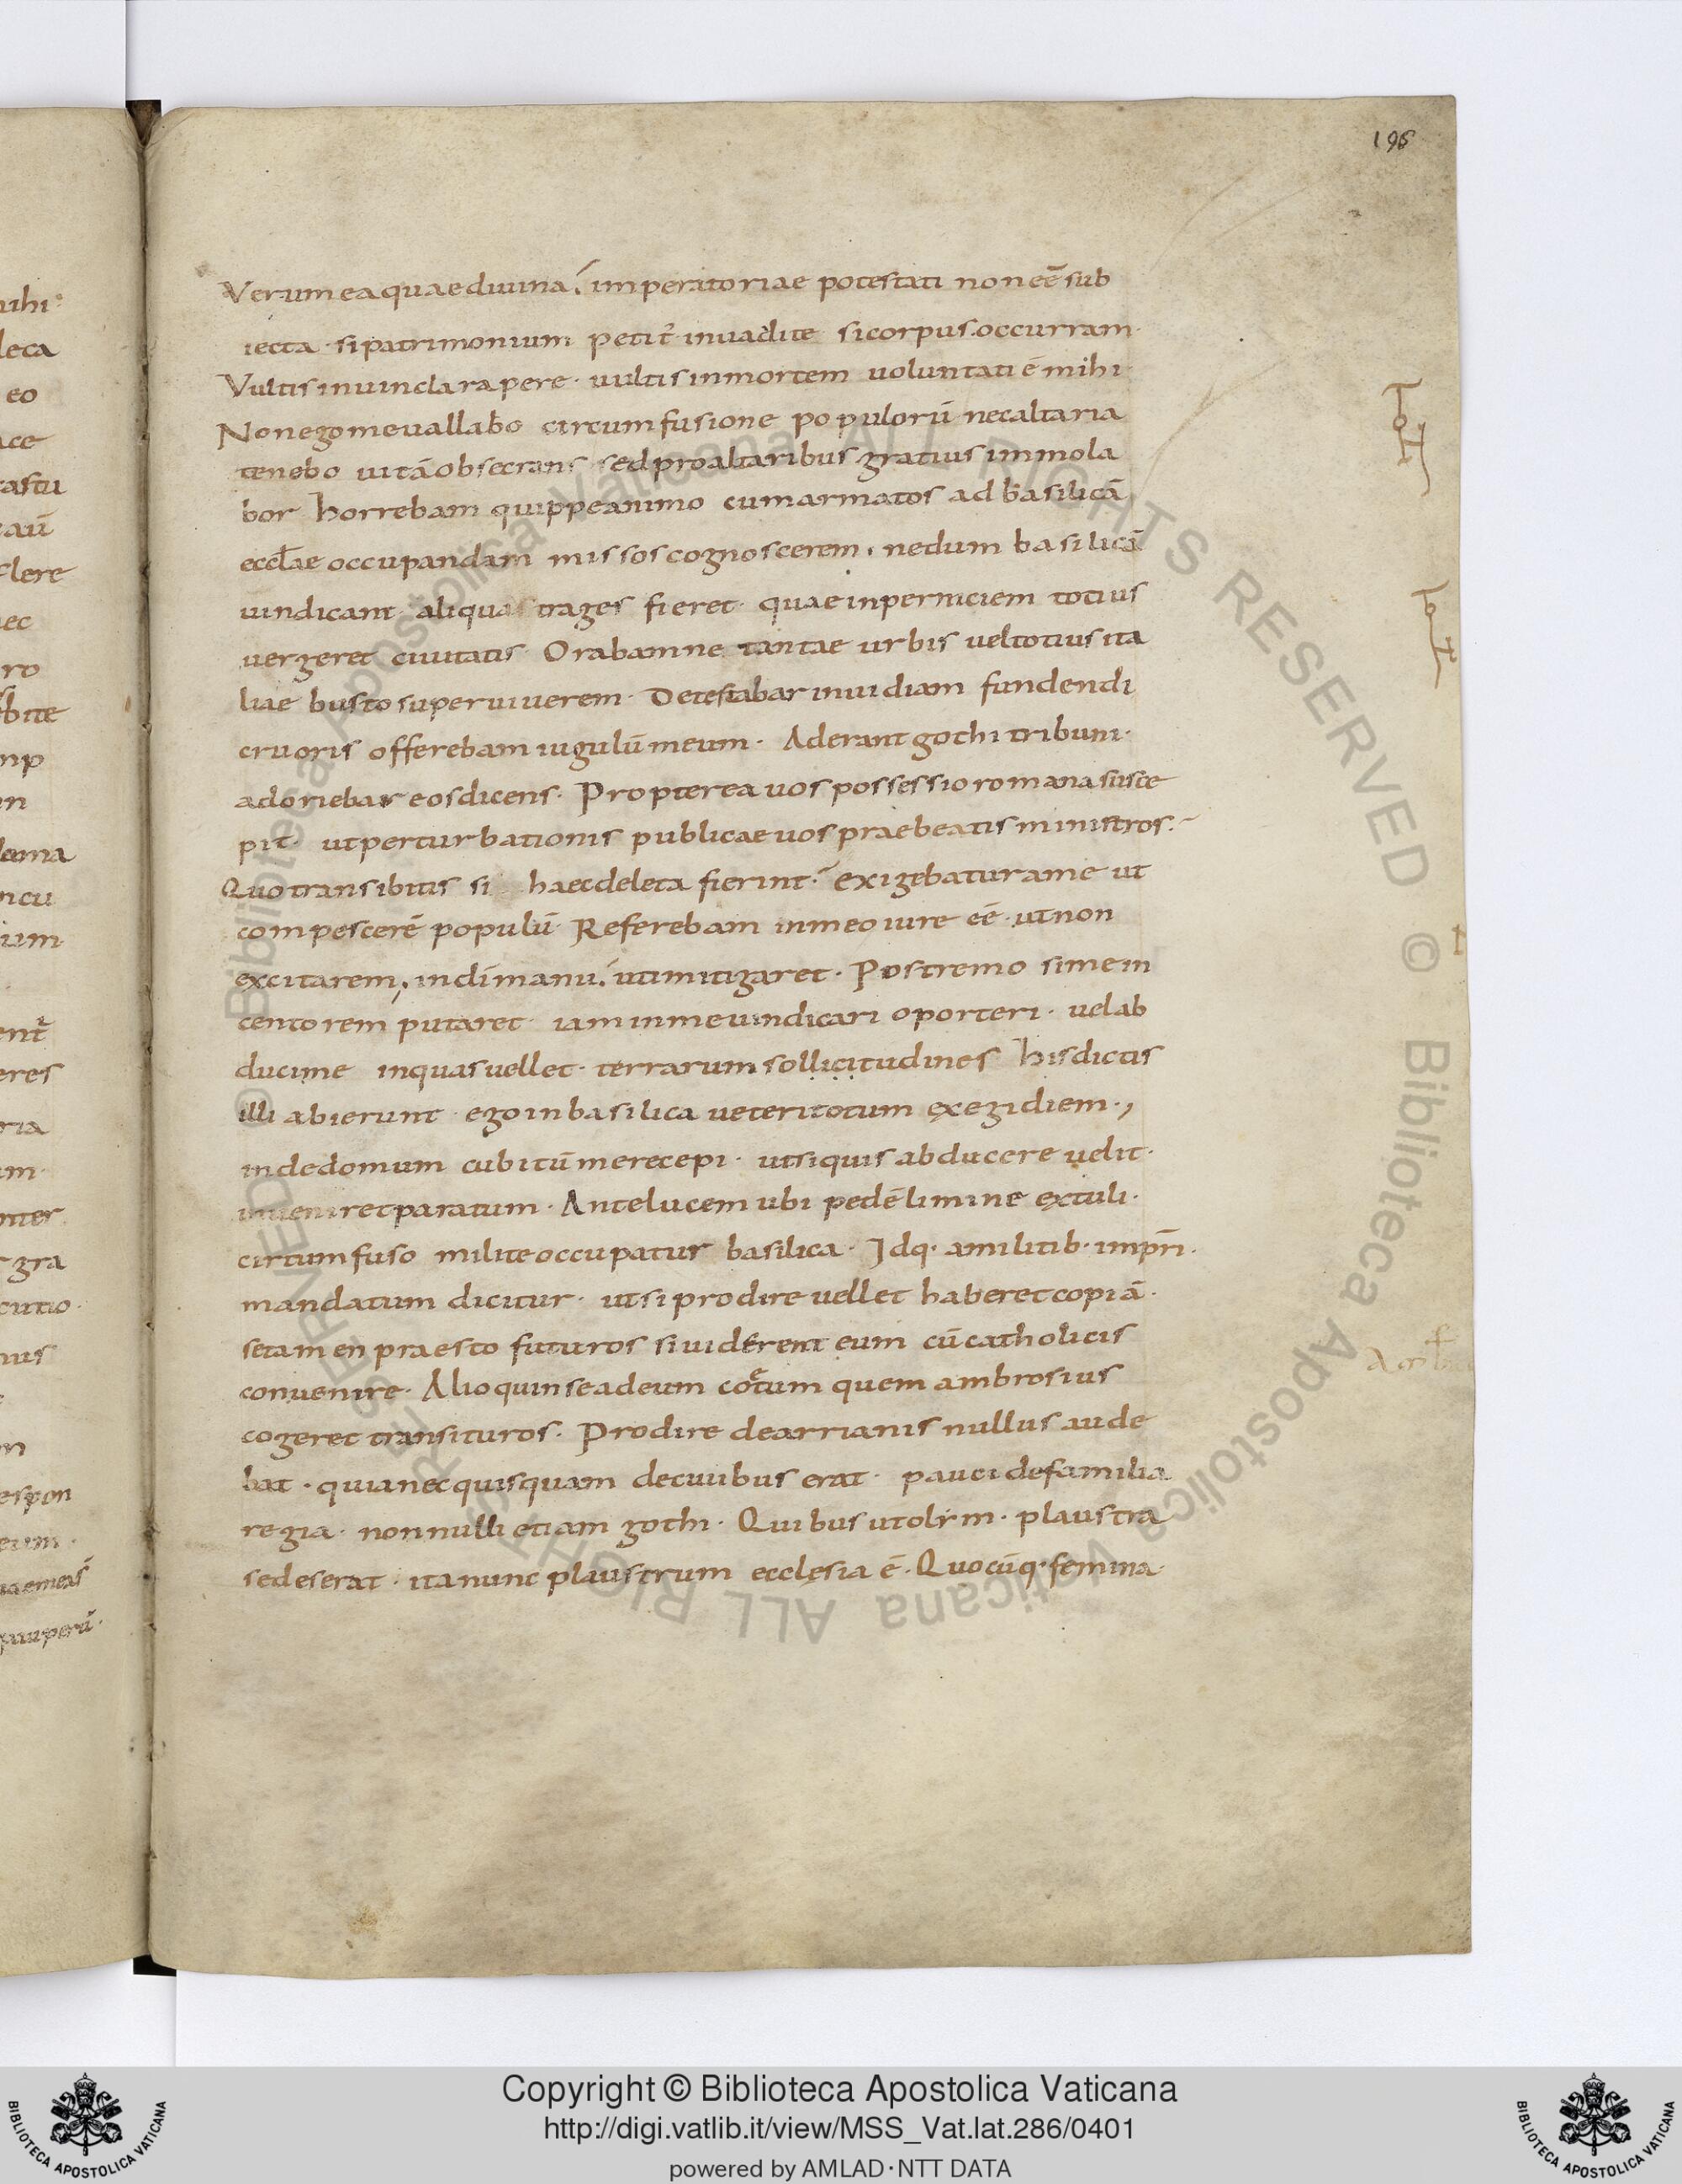 196
Verum ea quae diuina; imperatoriae potestati non eē sub
iecta si patrimonium petit̄ inuadite si corpus occurram·
Vultis inuincla rapere· uultis inmortem uoluntati ē mihi·
Non ego me uallabo circumfusione populorū nec altaria
tenebo uitā obsecrans sed pro altaribus gratius immola
bor horrebam quippe animo cum armatos ad basilicā
eccl̄ae occupandam missos cognoscerem· ne dum basilicā
uindicant aliqua strages fieret· quae inperniciem totius
uergeret ciuitatis· Orabam ne tantae urbis uel totius ita
liae busto superuiuerem· Detestabar inuidiam fundendi
cruoris offerebam iugulū meum· Aderant gothi tribuni·
adoriebar eos dicens· Propterea uos possessio romana susce
pit· ut perturbationis publicae uos praebeatis ministros·
Quo transibitis si haec deleta fierint· exigebatur a me ut
compescerē populū· Referebam in meo iure eē· ut non
excitarem; in dī manu; uti mitigaret· Postremo si me in
centorem putaret· iam in me uindicari oporteri· uel ab
duci me in quas uellet· terrarum sollicitudines his dictis
illi abierunt· ego in basilica ueteri totum exegi diem·,
inde domum cubitū me recepi· ut si quis abducere uelit·
inueniret paratum· Ante lucem ubi pedē limine extuli·
circumfuso milite occupatur basilica· Idq· a militib· imprī·
mandatum dicitur· ut si prodire uellet haberet copiā·
se tamen praesto futuros si uiderent eum cū catholicis
conuenire· Alioquin se ad eum coetum quem ambrosius
cogeret transituros· Prodire de arrianis nullus aude
bat· quia nec quisquam de ciuibus erat· pauci de familia
regia· nonnulli etiam gothi· Quibus ut olim· plaustra
sedes erat· ita nunc plaustrum ecclesia ē· Quocūq· femina·
nihi
leca
eo
ace
castu
flere
nec
ro
bite
mp
n
ncu
ium
eres
ria
um
nter
gra
cutio
nus
n
espon
eum
pauperū·
© Biblioteca Apostolica Vaticana ALL RIGHTS RESERVED © Biblioteca Apostolica Vaticana ALL RIGHTS RESERVED
Copyright © Biblioteca Apostolica Vaticana
http://digi.vatlib.it/view/MSS_Vat.lat.286/0401
powered by AMLAD·NTT DATA
BIBLIOTECA APOSTOLICA VATICANA
BIBLIOTECA APOSTOLICA VATICANA